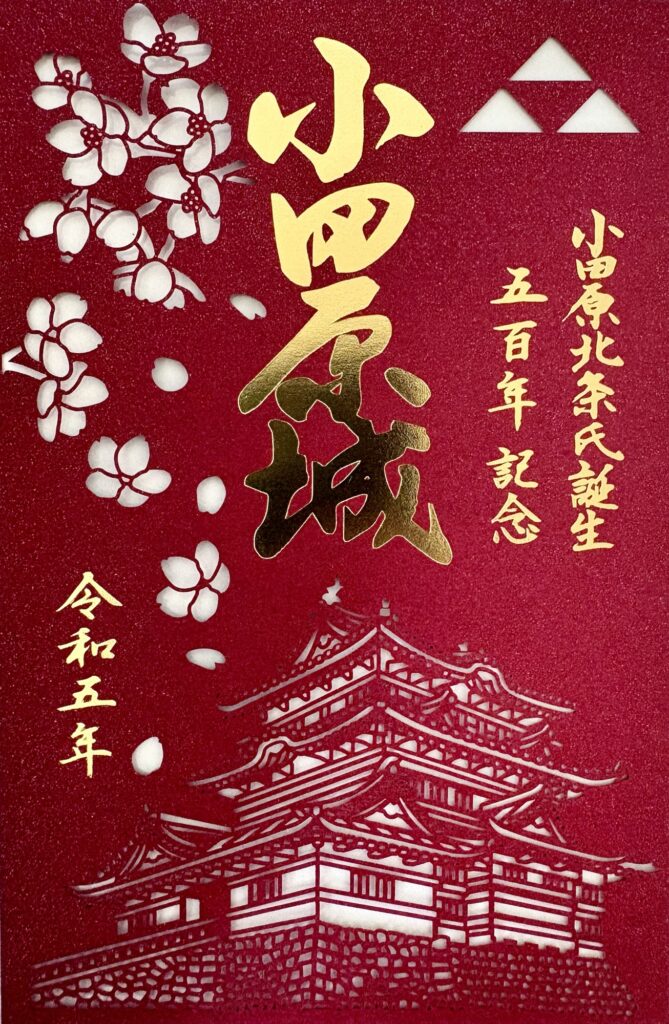 小田原北条氏誕生
五百年 記念
小田原城
令和五年